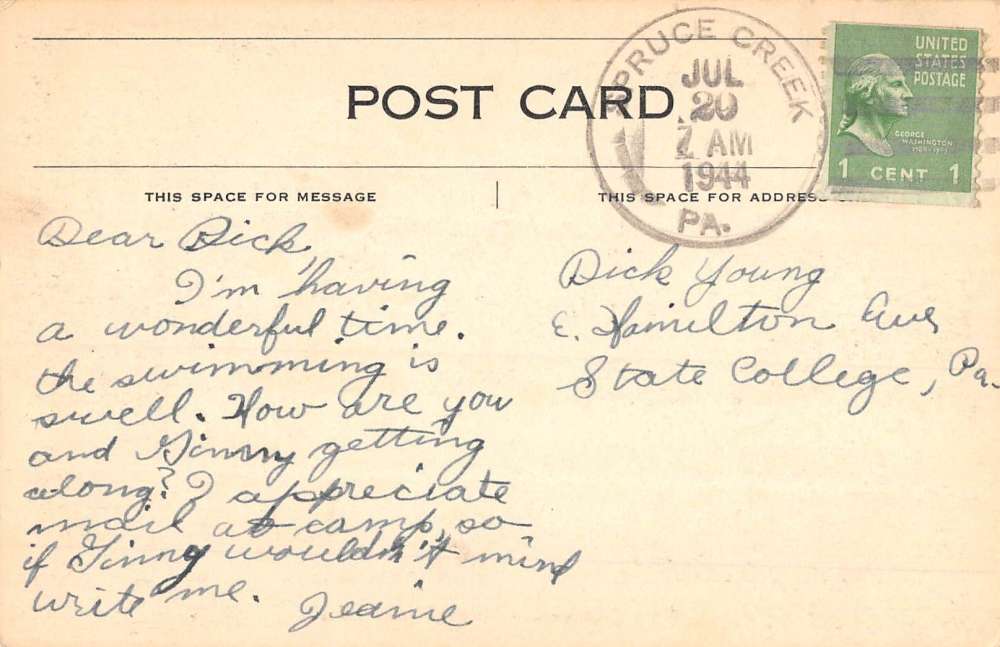 POST CARD
SPRUCE CREEK
JUL
20
7 AM
1944
PA.
UNITED
STATES
POSTAGE
GEORGE
WASHINGTON
1 CENT 1
THIS SPACE FOR MESSAGE
THIS SPACE FOR ADDRESS
Dear Dick,
I'm having
a wonderful time.
the swimming is
swell. How are you
and Ginny getting
along? I appreciate
mail at camp, so
if Ginny wouldn't mind
write me.
Jeanne
Dick Young
E. Hamilton Ave,
State College, Pa.